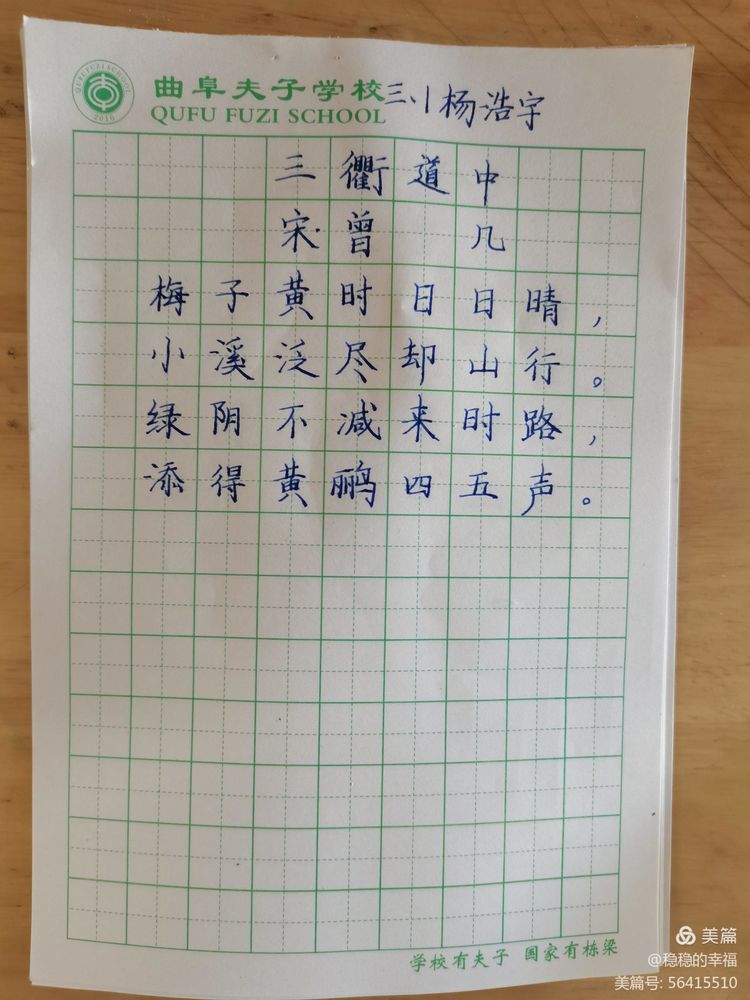 QUFU FUZI SCHOOL
2016
曲阜夫子学校
三、1 杨浩宇
QUFU FUZI SCHOOL
三衢道中
宋·曾几
梅子黄时日日晴，
小溪泛尽却山行。
绿阴不减来时路，
添得黄鹂四五声。
学校有夫子 国家有栋梁
美篇
@稳稳的幸福
美篇号: 56415510